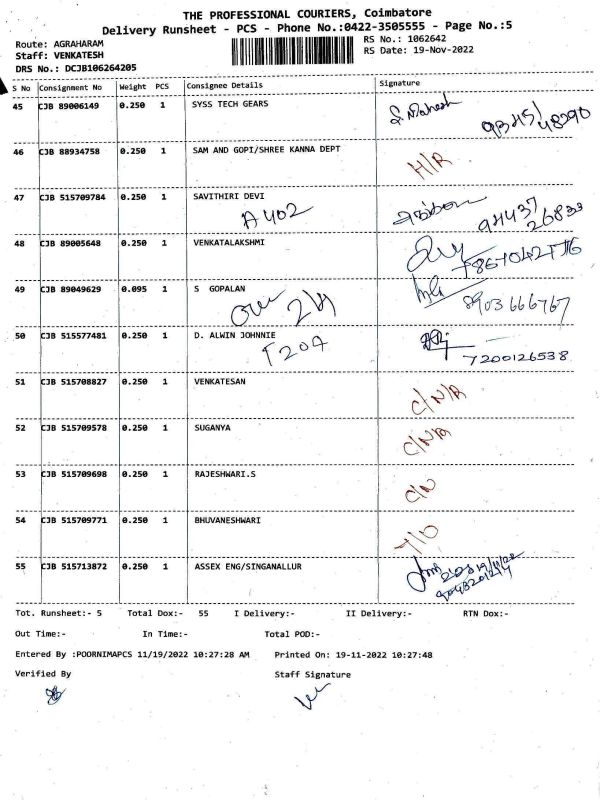 THE PROFESSIONAL COURIERS, Coimbatore
Delivery Runsheet - PCS - Phone No.:0422-3505555 - Page No.:5
Route: AGRAHARAM
RS No.: 1062642
Staff: VENKATESH
RS Date: 19-Nov-2022
DRS No.: DCJB106264205
S No Consignment No Weight PCS Consignee Details Signature
45 CJB 89006149 0.250 1 SYSS TECH GEARS
46 CJB 88934758 0.250 1 SAM AND GOPI/SHREE KANNA DEPT H/R
47 CJB 515709784 0.250 1 SAVITHIRI DEVI
A 402
48 CJB 89005648 0.250 1 VENKATALAKSHMI
49 CJB 89049629 0.095 1 S GOPALAN
8903666767
50 CJB 515577481 0.250 1 D. ALWIN JOHNNIE
7200126538
51 CJB 515708827 0.250 1 VENKATESAN C/N/R
52 CJB 515709578 0.250 1 SUGANYA C/N/R
53 CJB 515709698 0.250 1 RAJESHWARI.S C/N
54 CJB 515709771 0.250 1 BHUVANESHWARI
55 CJB 515713872 0.250 1 ASSEX ENG/SINGANALLUR
Tot. Runsheet:- 5 Total Dox:- 55 I Delivery:- II Delivery:- RTN Dox:-
Out Time:- In Time:- Total POD:-
Entered By :POORNIMAPCS 11/19/2022 10:27:28 AM Printed On: 19-11-2022 10:27:48
Verified By Staff Signature